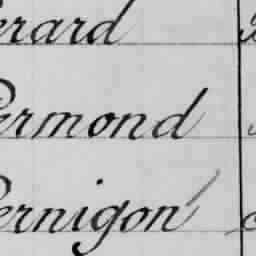 erard
ermond
ernigon